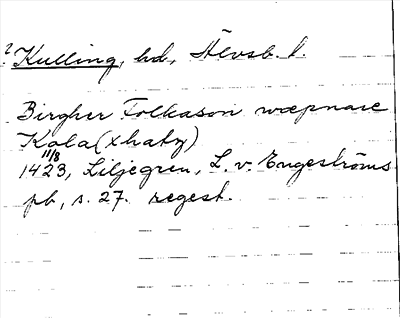 ? Kulling, hd, Älvsb. l.
Birgher Folkason wæpnare
Kala (xhatz)
11/8
1423, Liljegren, L. v. Engeströms
pb, s. 27. regest.